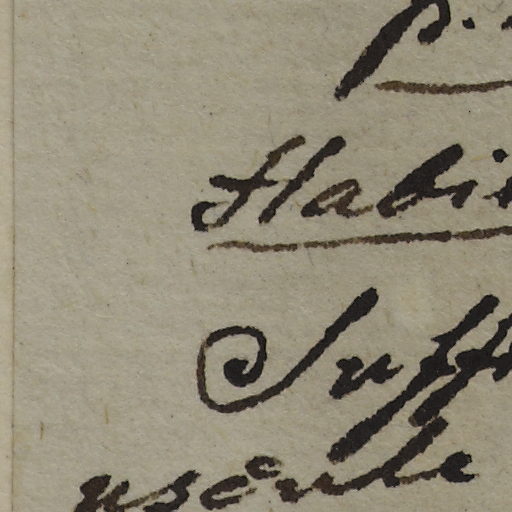 p.
Habi
Suff
uscule